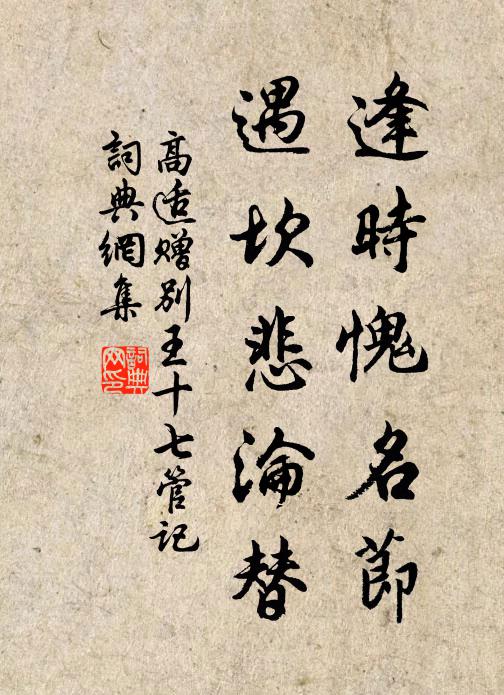 逢時愧名節
遇坎悲淪替
高适贈別王十七管記
詞典網集
詞典网印